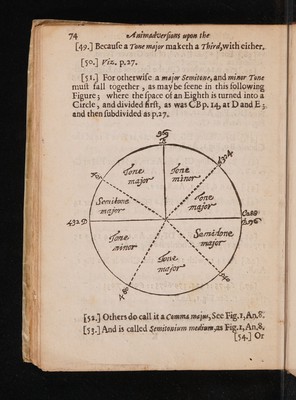 74 Animadversions upon the
[49.] Because a Tone major maketh a Third, with either.
[50.] Viz. p.27.
[51.] For otherwise a major Semitone, and minor Tone
must fall together, as may be seene in this following
Figure; where the space of an Eighth is turned into a
Circle, and divided first, as was CB p. 14, at D and E;
and then subdivided as p.27.
Tone
major
Tone
minor
Tone
major
Semitone
major
Tone
major
Tone
minor
Semitone
major
432 D
[52.] Others do call it a Comma majus, See Fig.1, An.8.
[53.] And is called Semitonium medium, as Fig.1, An.8.
[54.] Or